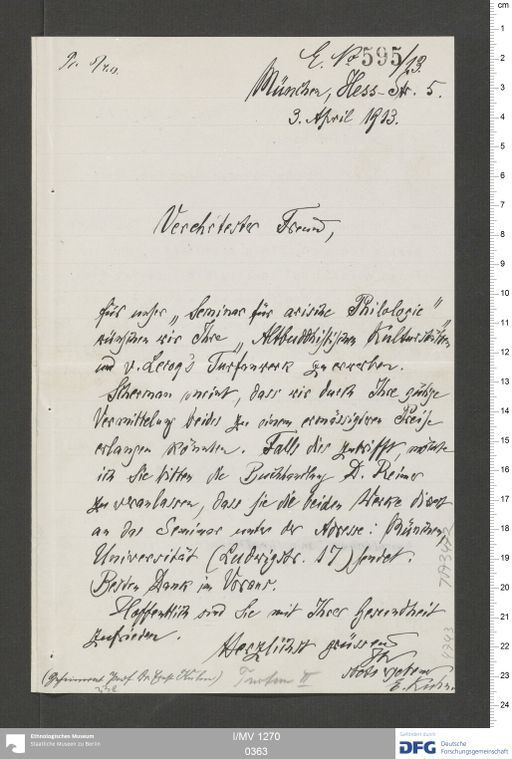 E. No 595/13.
München, Hess-Str. 5.
3. April 1913.
Verehrtester Freund,
für unser „Seminar für arische Philologie"
wünschen wir Ihre „Altbuddhistischen Kultstätten"
und v. Lecoq's Turfanwerk zu erwerben.
Scherman meint, dass wir durch Ihre gütige
Vermittelung beides zu einem ermässigten Preise
erlangen könnten. Falls dies zutrifft, möchte
ich Sie bitten die Buchhandlung D. Reimer
zu veranlassen, dass sie die beiden Werke direct
an das Seminar unter der Adresse: München,
Universität (Ludwigstr. 17) sendet.
Besten Dank im Voraus.
Hoffentlich sind Sie mit Ihrer Gesundheit
zufrieden.
Herzlichst grüssend
Ihr
stets ergebener
E. Kuhn.
(Geheimrat Prof. Dr. Ernst Kuhn)
Turfan II
Ethnologisches Museum
Staatliche Museen zu Berlin
I/MV 1270
0363
Gefördert durch
DFG Deutsche
Forschungsgemeinschaft
cm
1
2
3
4
5
6
7
8
9
10
11
12
13
14
15
16
17
18
19
20
21
22
23
24